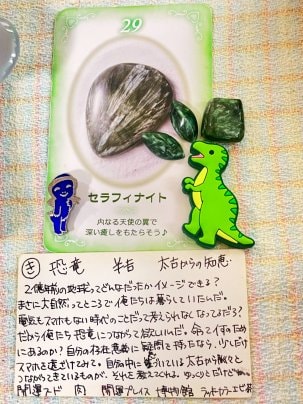 29
セラフィナイト
内なる天使の翼で
深い癒しをもたらそう♪
㊎ 恐竜 吉 太古からの知恵。
2億年前の地球ってどんなだったかイメージできる?
まさに大自然ってところで俺たちは暮らしていたんだ。
電気もスマホもない時代のことだって考えられなくなってるだろ?
だから俺たち恐竜につながって欲しいんだ。命ってすのため
にあるのか?自分の存在意義に疑問を持ったなら、少しだけ
スマホを遠ざけてみて。自分の中に ている太古から脈々と
つながってきているものが、それを教えてくれるよ。ゆっくりとだけどね。
開運フード 肉 開運プレイス 博物館